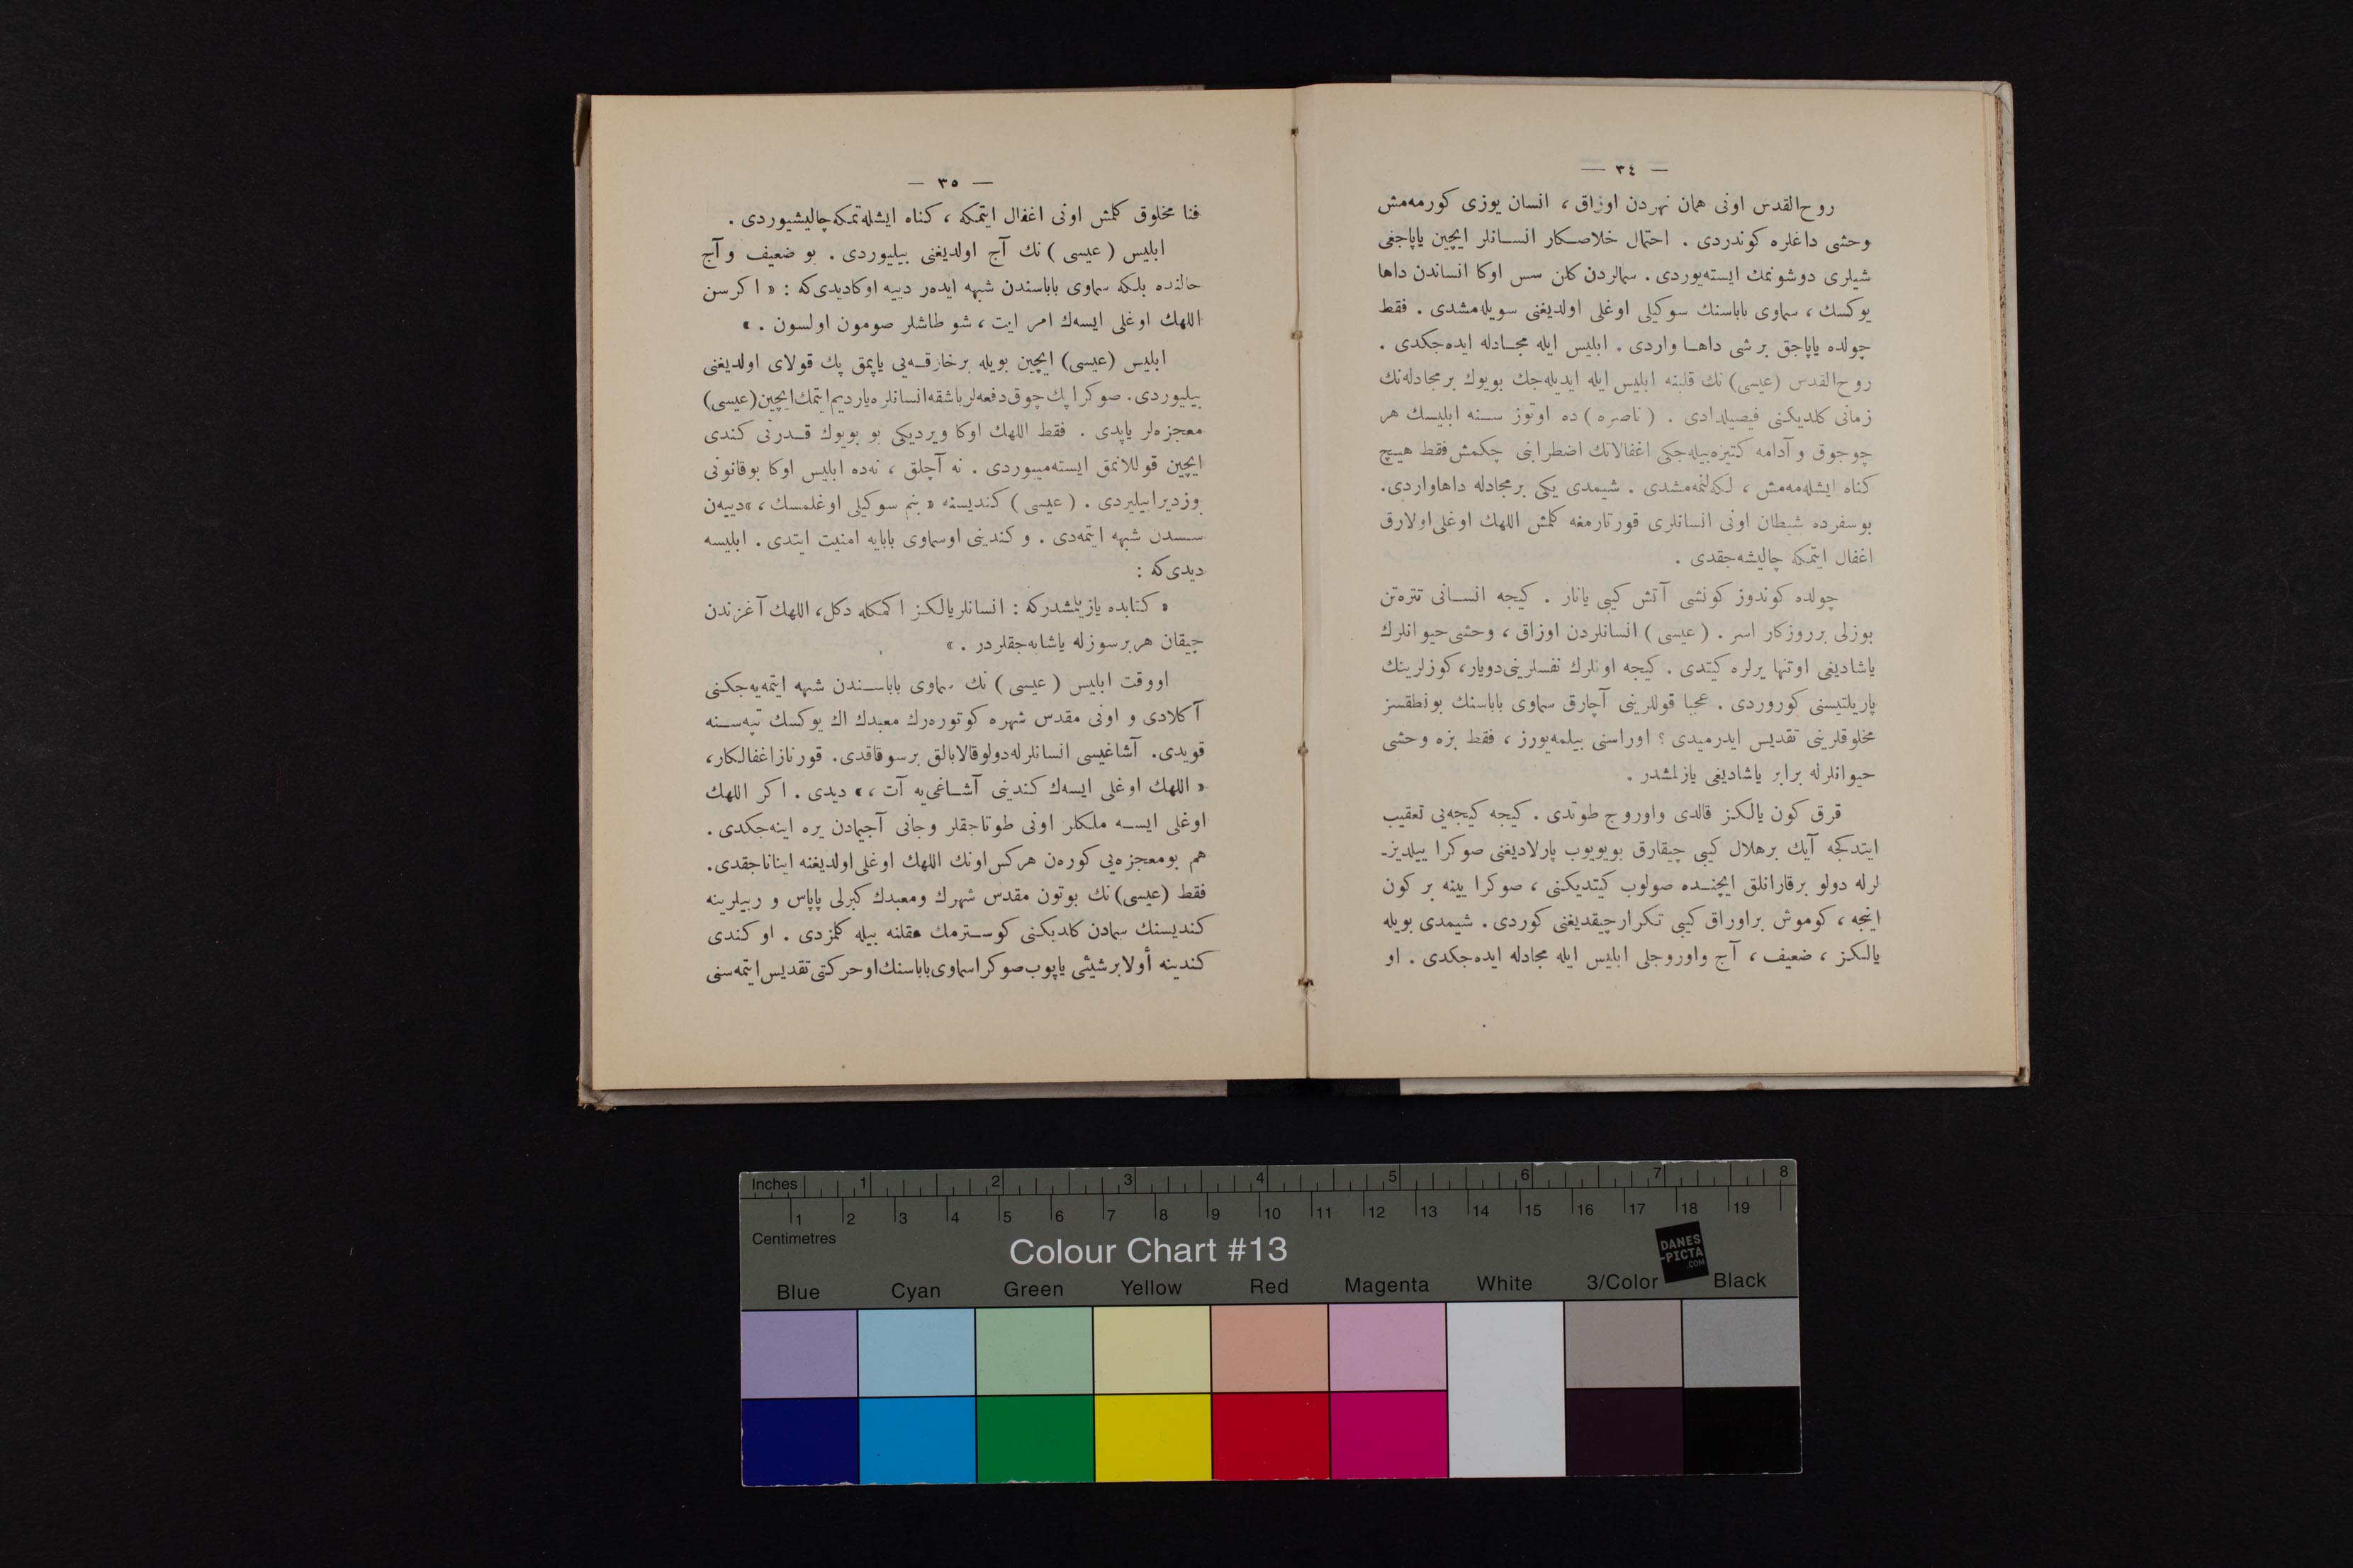 — ٣٤ —
روح‌القدس اونی همان نهردن اوزاق ، انسان یوزی کورمه‌مش
وحشی داغلره کوندردی . احتمال خلاصکار انسانلر ایچین یاپاجغی
شیلری دوشونمك ایسته‌یوردی . سمالردن کلن سس اوکا انساندن داها
یوکسك ، سماوی باباسنك سوکیلی اوغلی اولدیغنی سویله‌مشدی . فقط
چولده یاپاجق برشی داها واردی . ابلیس ایله مجادله ایده‌جکدی .
روح‌القدس (عیسی) نك قلبنه ابلیس ایله ایدیله‌جك بویوك برمجادله‌نك
زمانی کلدیکنی فیصیلدادی . (ناصره) ده اوتوز سنه ابلیسك هر
چوجوق و آدامه کتیره‌بیله‌جکی اغفالاتك اضطرابنی چکمش فقط هیچ
کناه ایشله‌مه‌مش ، لکه‌لنمه‌مشدی . شیمدی یکی برمجادله داها واردی.
بوسفرده شیطان اونی انسانلری قورتارمغه کلمش اللهك اوغلی اولارق
اغفال ایتمکه چالیشه‌جقدی .
چولده کوندوز کونشی آتش کیبی یانار . کیجه انسانی تتره‌تن
بوزلی برروزکار اسر . (عیسی) انسانلردن اوزاق ، وحشی حیوانلرك
یاشادیغی اوتنها یرلره کیتدی . کیجه اونلرك نفسلرینی دویار، کوزلرینك
پاریلتیسنی کوروردی . عجبا قوللرینی آچارق سماوی باباسنك بونطقسز
مخلوقلرینی تقدیس ایدرمیدی ؟ اوراسنی بیلمه‌یورز ، فقط بزه وحشی
حیوانلرله برابر یاشادیغی یازلمشدر .
قرق کون یالکز قالدی واوروج طوتدی . کیجه کیجه‌یی تعقیب
ایتدکجه آیك برهلال کیبی چیقارق بویویوب پارلادیغنی صوکرا ییلدیز-
لرله دولو برقارانلق ایچنده صولوب کیتدیکنی ، صوکرا یینه بر کون
اینجه ، کوموش براوراق کیبی تکرارچیقدیغنی کوردی . شیمدی بویله
یالکز ، ضعیف ، آج واوروجلی ابلیس ایله مجادله ایده‌جکدی . او
— ٣٥ —
فنا مخلوق کلمش اونی اغفال ایتمکه ، کناه ایشله‌تمکه چالیشیوردی .
ابلیس (عیسی) نك آج اولدیغنی بیلیوردی . بو ضعیف و آج
حالنده بلکه سماوی باباسندن شبهه ایده‌ر دییه اوکادیدی‌که : « اکرسن
اللهك اوغلی ایسه‌ك امر ایت ، شو طاشلر صومون اولسون . »
ابلیس (عیسی) ایچین بویله برخارقه‌یی یاپمق پك قولای اولدیغنی
بیلیوردی. صوکرا پك چوق دفعه‌لر باشقه انسانلره یاردیم ایتمك ایچین (عیسی)
معجزه‌لر یاپدی . فقط اللهك اوکا ویردیکی بو بویوك قدرتی کندی
ایچین قوللانمق ایسته‌میوردی . نه آچلق ، نه‌ده ابلیس اوکا بوقانونی
بوزدیرابیلیردی . (عیسی) کندیسنه « بنم سوکیلی اوغلمسك ، » دییه‌ن
سسدن شبهه ایتمه‌دی . و کندینی اوسماوی بابایه امنیت ایتدی . ابلیسه
دیدی‌که :
« کتابده یازیلمشدرکه : انسانلریالکز اکمکله دکل، اللهك آغزندن
چیقان هربرسوزله یاشایه‌جقلردر . »
اووقت ابلیس (عیسی) نك سماوی باباسندن شبهه ایتمه‌یه‌جکنی
آکلادی و اونی مقدس شهره کوتوره‌رك معبدك اك یوکسك تپه‌سنه
قویدی. آشاغیسی انسانلرله دولو قالابالق برسوقاقدی. قورناز اغفالکار،
« اللهك اوغلی ایسه‌ك کندینی آشاغی‌یه آت ، » دیدی . اکر اللهك
اوغلی ایسه ملکلر اونی طوتاجقلر وجانی آجیمادن یره اینه‌جکدی .
هم بومعجزه‌یی کوره‌ن هرکس اونك اللهك اوغلی اولدیغنه ایناناجقدی.
فقط (عیسی) نك بوتون مقدس شهرك ومعبدك کبرلی پاپاس و ربیلرینه
کندیسنك سمادن کلدیکنی کوسترمك عقلنه بیله کلمزدی . او کندی
کندینه أولا برشیئی یاپوب صوکرا سماوی باباسنك اوحرکتی تقدیس ایتمه‌سنی
Inches 1 2 3 4 5 6 7 8
1 2 3 4 5 6 7 8 9 10 11 12 13 14 15 16 17 18 19
Centimetres
Colour Chart #13
DANES
-PICTA
.COM
Blue Cyan Green Yellow Red Magenta White 3/Color Black